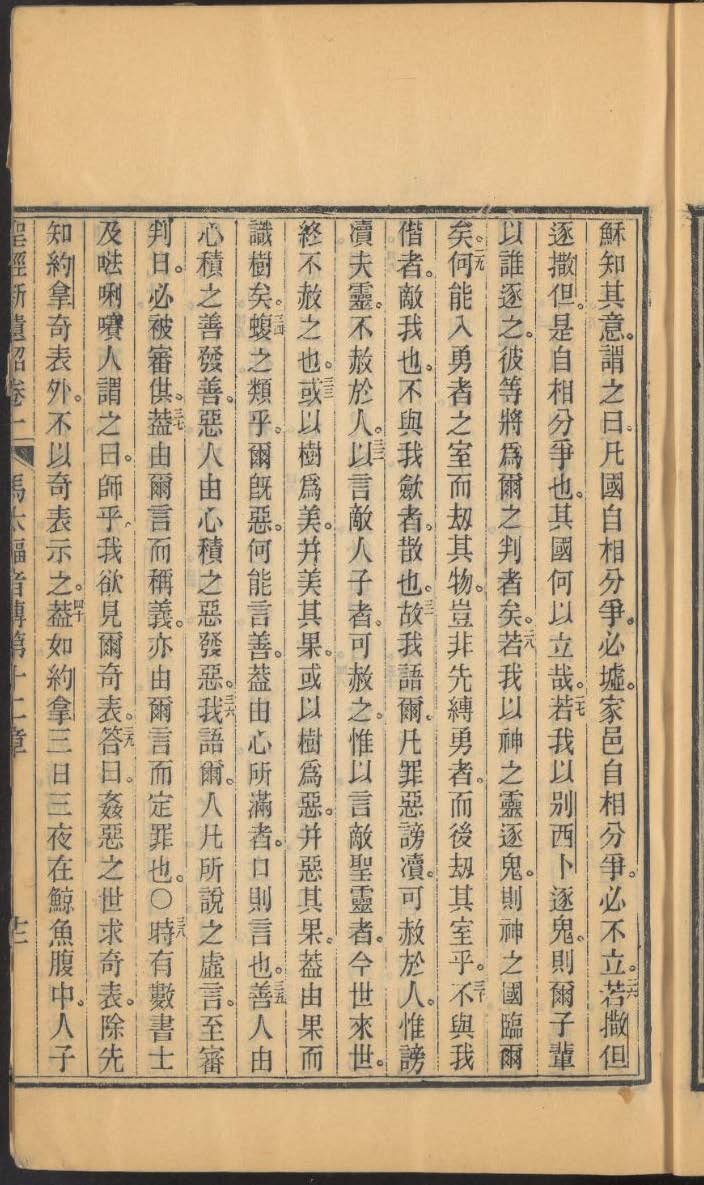 穌知其意。謂之曰。凡國自相分爭。必墟。家邑自相分爭。必不立。二六若撒但
逐撒但。是自相分爭也。其國何以立哉。二七若我以別西卜逐鬼。則爾子輩
以誰逐之。彼等將爲爾之判者矣。二八若我以神之靈逐鬼。則神之國臨爾
矣。二九何能入勇者之室而刼其物。豈非先縛勇者。而後刼其室乎。三十不與我
偕者。敵我也。不與我歛者。散也。三一故我語爾。凡罪惡謗瀆。可赦於人。惟謗
瀆夫靈。不赦於人。三二以言敵人子者。可赦之。惟以言敵聖靈者。今世來世。
終不赦之也。三三或以樹爲美。并美其果。或以樹爲惡。并惡其果。葢由果而
識樹矣。三四蝮之類乎。爾旣惡。何能言善。葢由心所滿者。口則言也。三五善人由
心積之善發善。惡人由心積之惡發惡。三六我語爾。人凡所說之虛言。至審
判日。必被審供。三七葢由爾言而稱義。亦由爾言而定罪也。○三八時有數書士
及𠵽唎㘔人謂之曰。師乎。我欲見爾奇表。三九答曰。姦惡之世求奇表。除先
知約拿奇表外。不以奇表示之。四十葢如約拿三日三夜在鯨魚腹中。人子
聖經新遺詔卷一 馬太福音傳第十二章 廿二